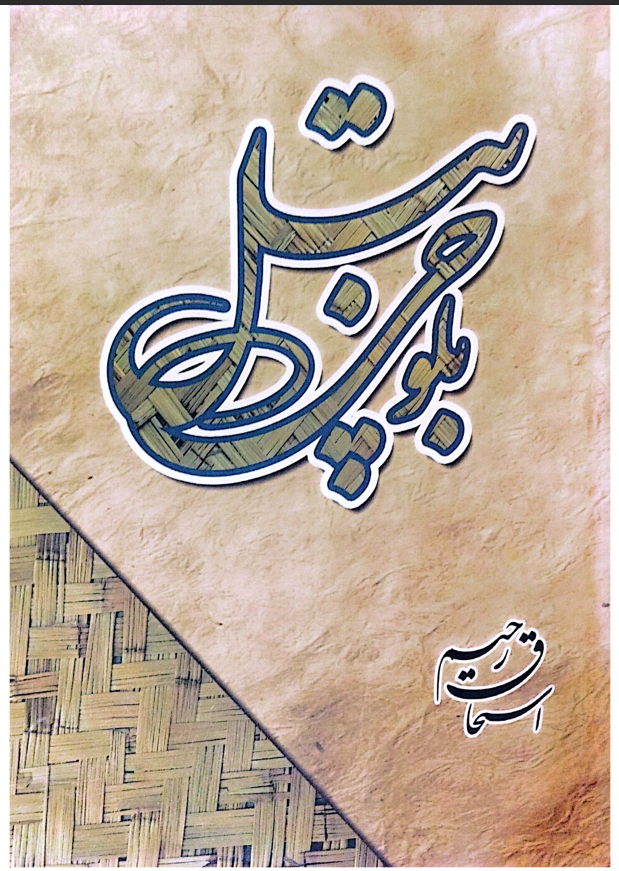 بلوچی بتل
اسحاق رحیم